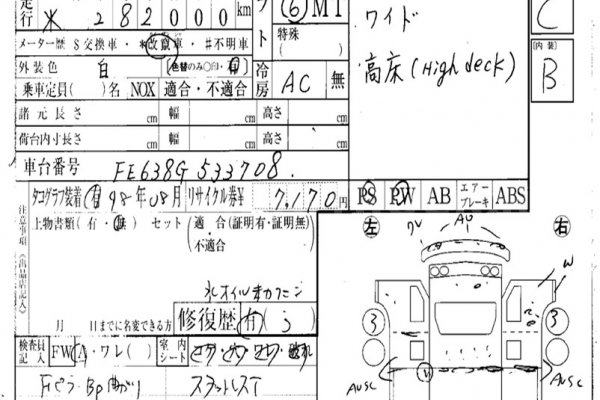 走行 * 282000km
フト ⑥MT
メーター歴 S交換車・*改竄車・#不明車
特殊( )
ワイド
高床(High deck)
C
[内装]
B
外装色 白 (色替のみ○印・有)
冷房 AC 無
乗車定員( )名 NOX 適合・不適合
諸元長さ cm 幅 cm 高さ cm
荷台内寸長さ cm 幅 cm 高さ cm
車台番号 FE638G 533708.
タコグラフ装着 有 98年08月 リサイクル券¥ 7,170円
PS PW AB エアーブレーキ ABS
注意事項(出品店記入)
上物書類(有・無) セット(適合(証明有・証明無) 不適合)
左 右
AU
W
月 日までに名変できる方
修復歴 有( )
3 3
検査員記入 FW A・ワレ( )
室内シート
AUSC AUSC
Fピラ・Bp曲がり
スタットレスT